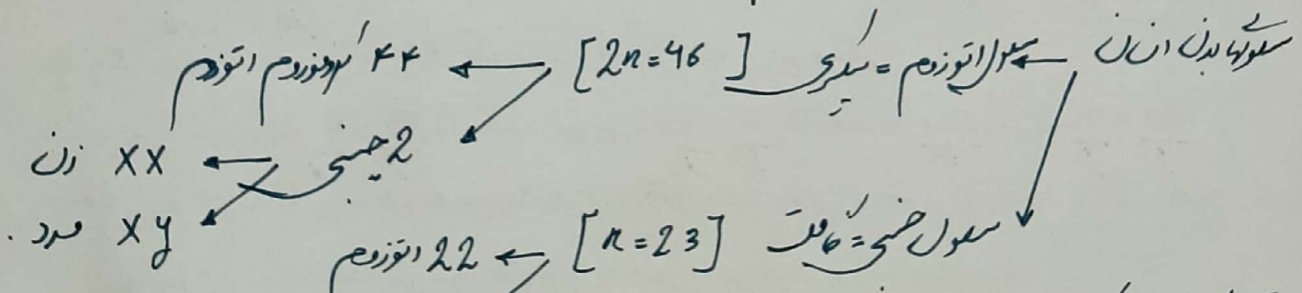 سلولهای بدن انسان ← سلول اتوزوم = پیکری [2n=46] ← ۴۴ کروموزوم اتوزوم
2 جنسی ← XX زن
Xy مرد.
سلول جنسی = گامت [n=23] ← 22 اتوزوم